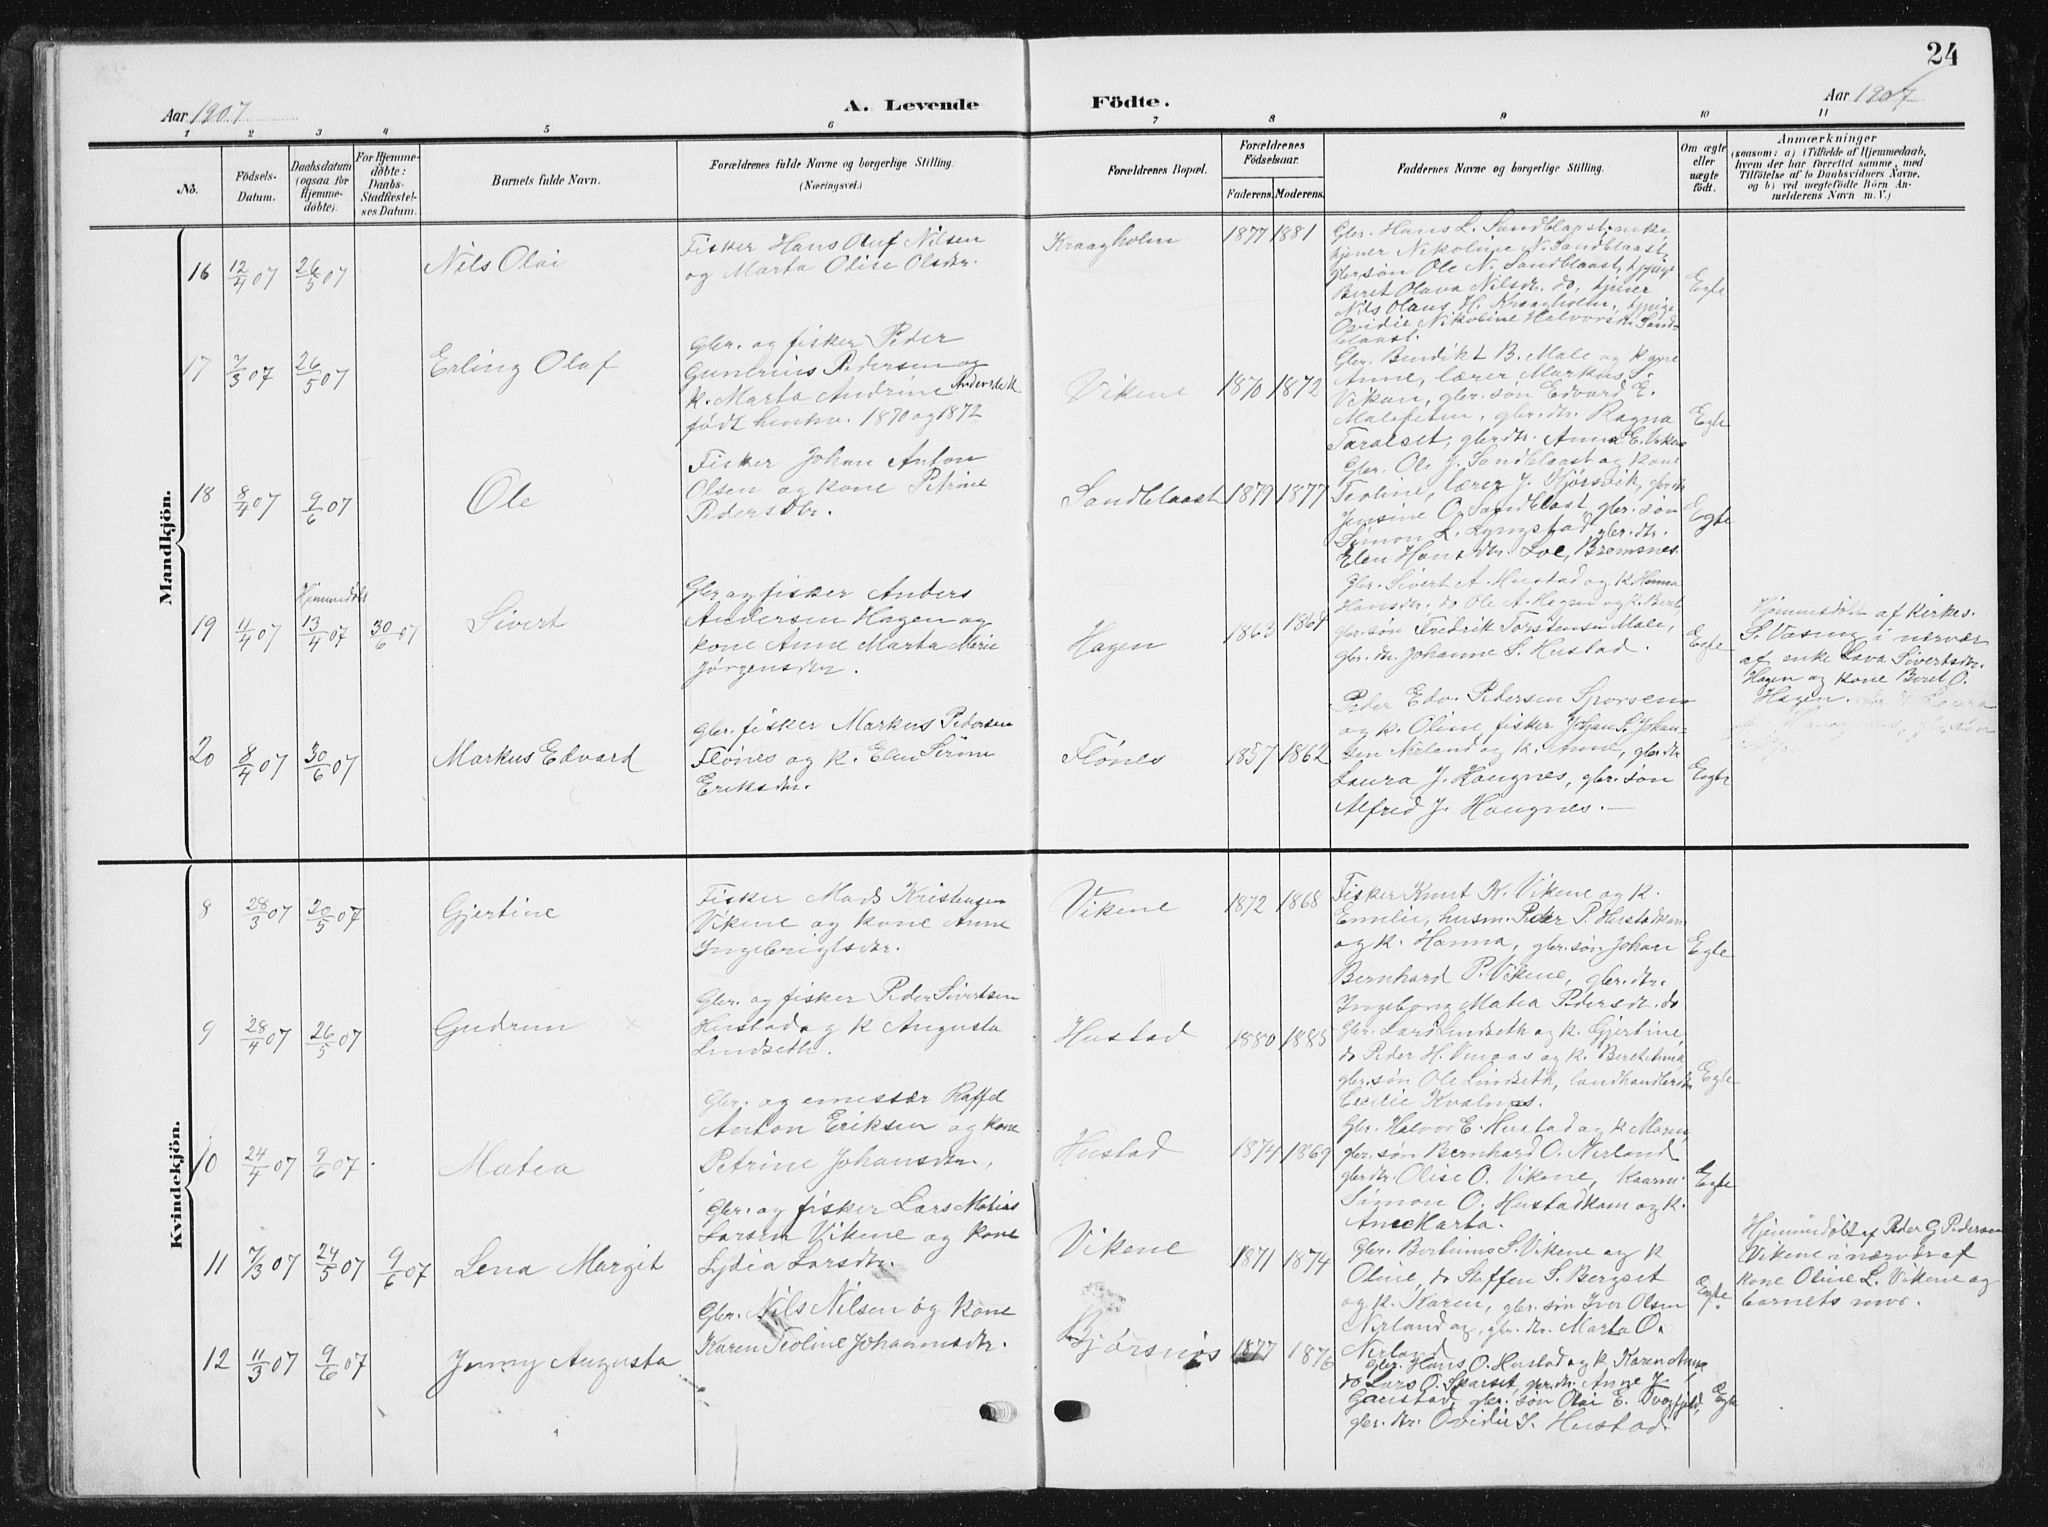 24
Aar 1907
A. Levende
Födte.
Aar 1907
1 2 3 4 5 6 7 8 9 10 11
No.
Födsels-
Datum.
Daabsdatum
(ogsaa for
Hjemme-
döbte).
For Hjemme-
döbte:
Daabs-
Stadfæstel-
ses Datum.
Barnets fulde Navn.
Forældrenes fulde Navne og borgerlige Stilling.
(Næringsvei.)
Forældrenes Bopæl.
Forældrenes
Födselsaar.
Faderens. Moderens.
Faddernes Navne og borgerlige Stilling.
Om ægte
eller
uægte
födt.
Anmærkninger
(saasom: a) i Tilfælde af Hjemmedaab,
hvem der har forrettet samme, med
Tilföielse af to Daabsvidners Navne,
og b) ved uægtefödte Börn An-
melderens Navn m. V.)
Mandkjön.
16 12/4 07 26/5 07
Nils Olai
Fisker Hans Oluf Nilsen
og Marta Olise Olsdtr.
Kraagholm
1877 1881
Gbr. Hans L. Sandblaast, enke
tjener Nikoline N. Sandblaast,
gbr.søn Ole N. Sandblaast, tjpige
Beret Olava Nilsdtr. do, tjener
Nils Olaus H. Kraagholm, tjpige
Ovidie Nikoline Halvorsdtr. Sand-
blaast.
Egte
17 7/3 07 26/5 07
Erling Olaf
Gbr. og fisker Peder
Gunerius Pedersen og
k. Marta Andrine Andersdatr
født henhv. 1870 og 1872
Vikene
1870 1872
Gbr. Bendikt B. Male og k
Anne, lærer Markus
Vikan, gbr. søn Edvard E.
Malefeten, gbr. dtr. Ragna
Taralset, gbr. dtr. Anna E. Vikene
Egte
18 8/4 07 9/6 07
Ole
Fisker Johan Anton
Olsen og kone Petrine
Pedersdtr.
Sandblaast
1879 1877
Gbr. Ole J. Sandblaast og kone
Teoline, lærer J. Hjørsvik, gbr. dtr
Jensine O. Sandblast, gbr. søn
Simon L. Lyngstad, gbr. dtr.
Elen Hansdtr. Loe, Bremsnes.
Egte
19 11/4 07
Hjemmedøbt
13/4 07 30/6 07
Sivert
Gbr og fisker Anders
Andersen Hagen og
kone Anne Marta Marie
Jørgensdtr.
Hagen
1863 1864
Gbr. Sivert A. Hustad og k Hanna
Hansdtr. do Ole A. Hagen og k. Beret,
gbr. søn Fredrik Torstensen Male,
gbr. dtr. Johanne S. Hustad.
Egte
Hjemmedøbt af kirkes.
S. Vasing i nærvær
af enke Lava Sivertsdtr.
Hagen og kone Beret O.
Hagen.
20 8/4 07 30/6 07
Markus Edvard
Gbr. fisker Markus Pedersen
Flønes og k. Elen Serine
Eriksdtr.
Flønes
1857 1862
Peder Edv. Pedersen Sporsem
og k. Oline, fisker Johan S. Johan-
sen Nerland og k. Anne, gbr. dtr
Laura J. Haugnes, gbr. søn
Alfred J. Haugnes.
Egte
Kvindekjön.
8 28/3 07 20/5 07
Gjertine
Fisker Mads Kristensen
Vikene og kone Anne
Ingebrigtsdtr.
Vikene
1872 1868
Fisker Knut K. Vikene og k.
Emelie, husm. Peder P. Hustadkam
og k. Hanna, gbr. søn Johan
Bernhard P. Vikene, gbr. dtr.
Ingeborg Matea Pedersdtr. do
Egte
9 28/4 07 26/5 07
Gudrun
Gbr. og fisker Peder Sivertsen
Hustad og k Augusta
Lindseth.
Hustad
1880 1885
Gbr. Lars Lindseth og k. Gjertine,
do Peder H. Vingas og k. Beret Anna
gbr. søn Ole Lindseth, landhandlerdtr
Cecilie Kvalnæs.
Egte
10 24/4 07 9/6 07
Matea
Gbr. og emissær Raffel
Anton Eriksen og kone
Petrine Johansdtr.,
Hustad
1874 1869
Gbr. Halvor E. Hustad og k Maren,
gbr. søn Bernhard O. Nerland
gbr dtr. Olise O. Vikene, kaarm.
Simon O. Hustadkam og k.
Ane Marta.
Egte
11 7/3 07 24/5 07 9/6 07
Lena Margit
Gbr. og fisker Lars Matias
Larsen Vikene og kone
Lydia Larsdtr.
Vikene
1871 1874
Gbr. Bertinus S. Vikene og k
Oline, do Steffen S. Bergset
og k. Karen, gbr. søn Iver Olsen
Nerland og, gbr. dtr. Marta O.
Nerland
Egte.
Hjemmedøbt af Peder G Pedersen
Vikene i nærvær af
kone Oline L. Vikene og
barnets mor.
12 11/3 07 9/6 07
Jenny Augusta
Gbr. Nils Nilsen og kone
Karen Teoline Johannesdtr.
Bjørsnøs
1877 1876
Gbr. Hans O. Hustad og k Karen Anna,
do Lars O. Sparset, gbr. dtr. Anne J.
Gaustad, gbr. søn Olai E. Tverfjeld,
gbr. dtr. Ovidie S. Hustad.
Egte